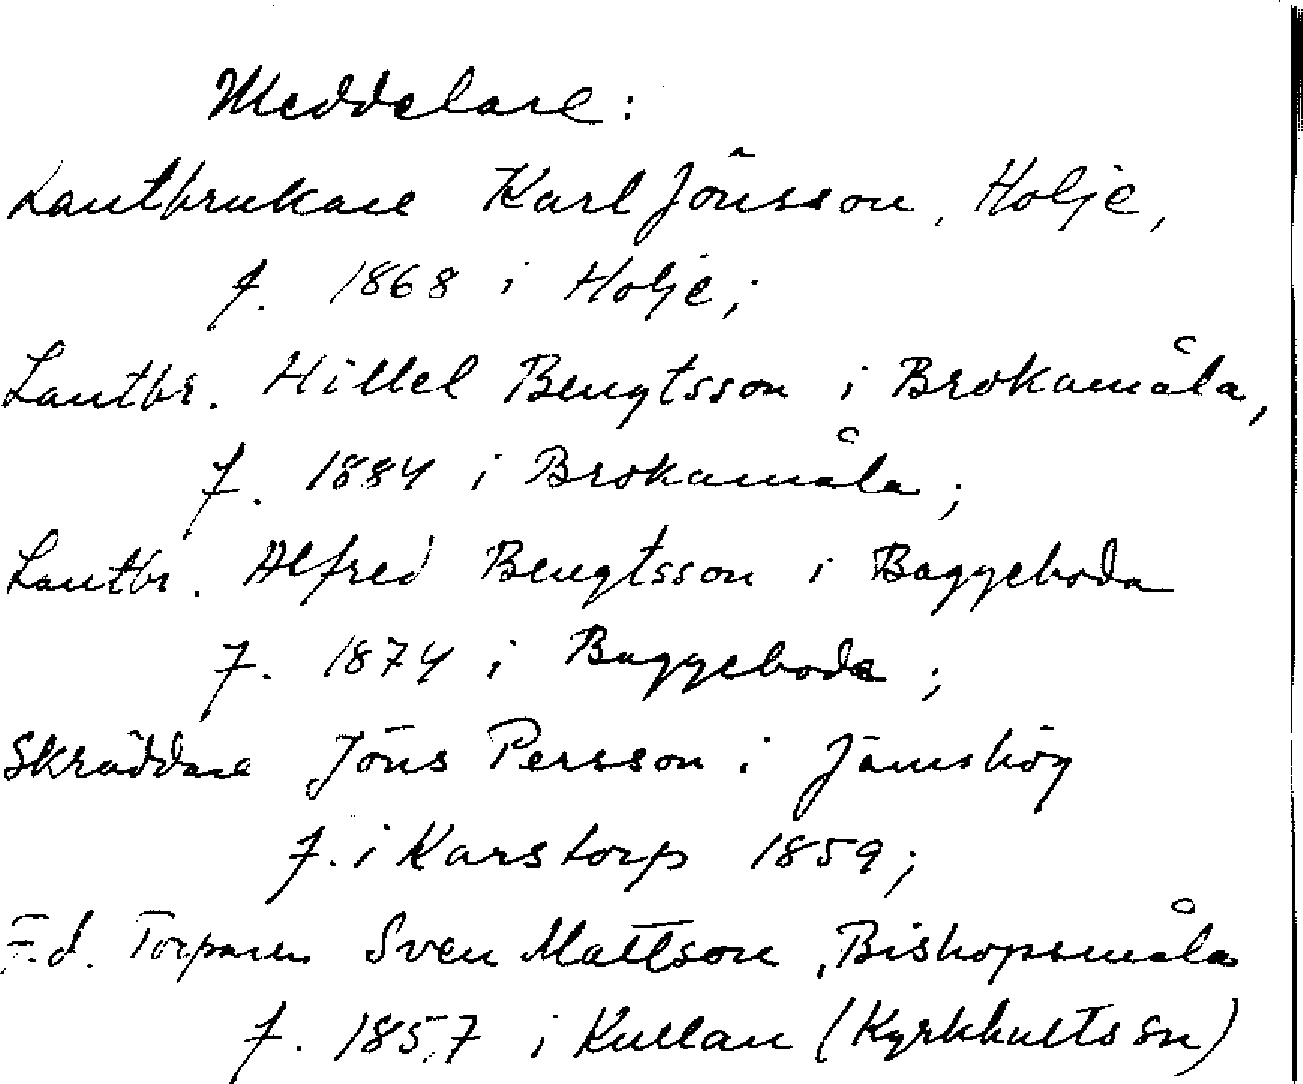 Meddelare:
Lantbrukare Karl Jönsson, Holje,
f. 1868 i Holje;
Lantbr. Hillel Bengtsson i Brokamåla,
f. 1884 i Brokamåla;
Lantbr. Alfred Bengtsson i Baggeboda
f. 1874 i Baggeboda;
Skräddare Jöns Persson i Jämshög
f. i Karstorp 1859;
F.d. Torparen Sven Mattson, Biskopsmåla
f. 1857 i Kullan (Kyrkhults sn)